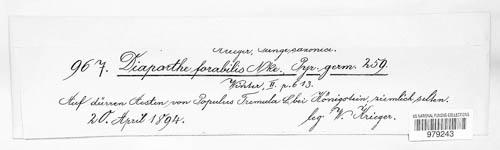 Krieger, Fungi saxonici.
967. Diaporthe forabilis Nke. Pyr. germ. 259.
Winter, II. p. 613.
Auf dürren Aesten von Populus Tremula L. bei Königstein, ziemlich selten.
20. April 1894. leg. W. Krieger.
US NATIONAL FUNGUS COLLECTIONS
979243